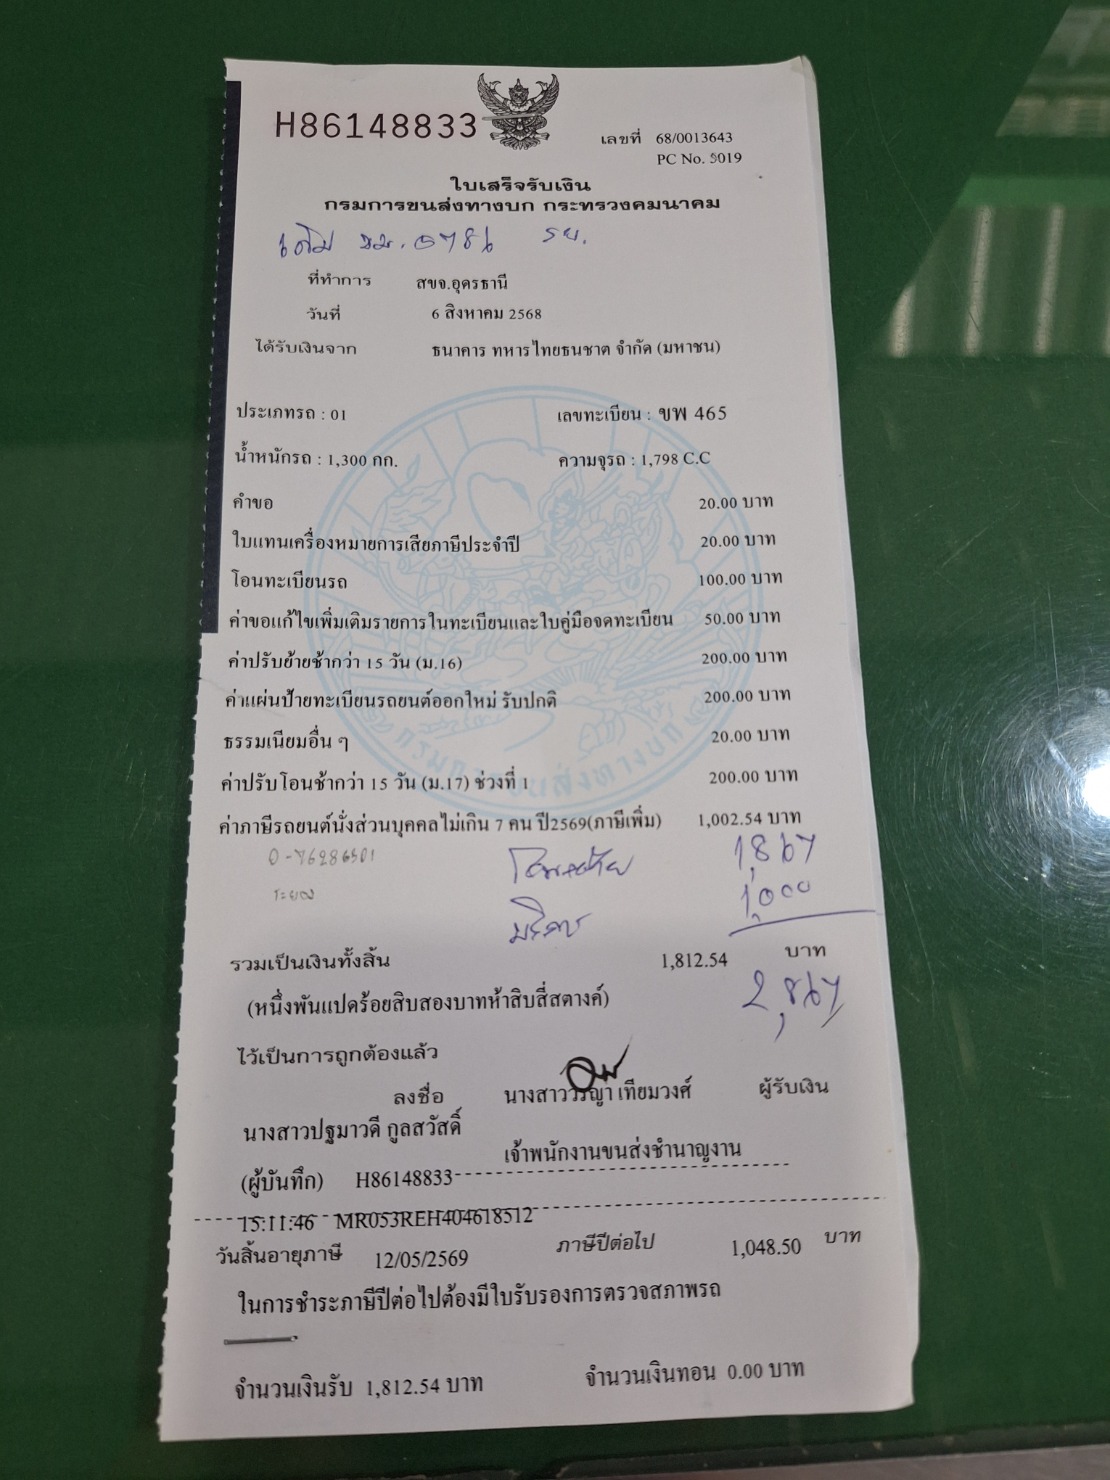 H86148833
เลขที่ 68/0013643
PC No. 5019
ใบเสร็จรับเงิน
กรมการขนส่งทางบก กระทรวงคมนาคม
เดิม ขม.0786 รย.
ที่ทำการ สขจ.อุดรธานี
วันที่ 6 สิงหาคม 2568
ได้รับเงินจาก ธนาคาร ทหารไทยธนชาต จำกัด (มหาชน)
ประเภทรถ : 01 เลขทะเบียน : ขพ 465
น้ำหนักรถ : 1,300 กก. ความจุรถ : 1,798 C.C
คำขอ 20.00 บาท
ใบแทนเครื่องหมายการเสียภาษีประจำปี 20.00 บาท
โอนทะเบียนรถ 100.00 บาท
ค่าขอแก้ไขเพิ่มเติมรายการในทะเบียนและใบคู่มือจดทะเบียน 50.00 บาท
ค่าปรับย้ายช้ากว่า 15 วัน (ม.16) 200.00 บาท
ค่าแผ่นป้ายทะเบียนรถยนต์ออกใหม่ รับปกติ 200.00 บาท
ธรรมเนียมอื่น ๆ 20.00 บาท
ค่าปรับโอนช้ากว่า 15 วัน (ม.17) ช่วงที่ 1 200.00 บาท
ค่าภาษีรถยนต์นั่งส่วนบุคคลไม่เกิน 7 คน ปี2569(ภาษีเพิ่ม) 1,002.54 บาท
1,867
ระยอง 1,000
บริการ
รวมเป็นเงินทั้งสิ้น 1,812.54 บาท
(หนึ่งพันแปดร้อยสิบสองบาทห้าสิบสี่สตางค์) 2,867
ไว้เป็นการถูกต้องแล้ว
ลงชื่อ นางสาววรัญา เทียมวงศ์ ผู้รับเงิน
นางสาวปฐมาวดี กูลสวัสดิ์
เจ้าพนักงานขนส่งชำนาญงาน
(ผู้บันทึก) H86148833
15:11:46 MR053REH404618512
วันสิ้นอายุภาษี 12/05/2569 ภาษีปีต่อไป 1,048.50 บาท
ในการชำระภาษีปีต่อไปต้องมีใบรับรองการตรวจสภาพรถ
จำนวนเงินรับ 1,812.54 บาท จำนวนเงินทอน 0.00 บาท